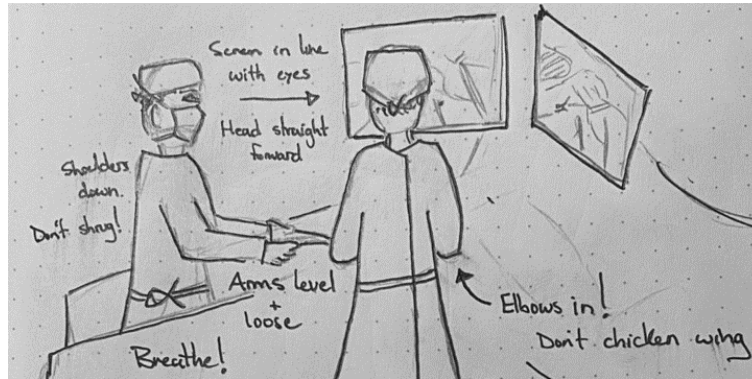 Screen in line
with eyes
Head straight
forward
Shoulders
down.
Don't shrug!
Arms level
+
loose
Breathe!
Elbows in!
Don't chicken wing